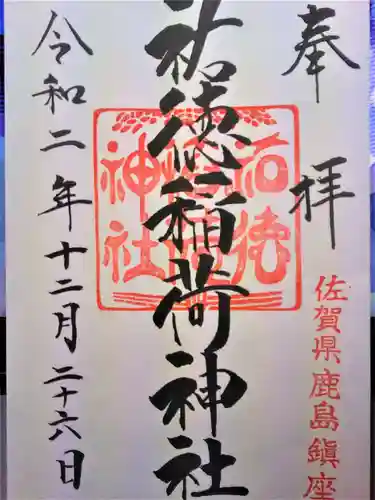 奉拝
佐賀県鹿島鎮座
祐徳稲荷神社
祐徳
稲荷
神社
令和二年十二月二十六日